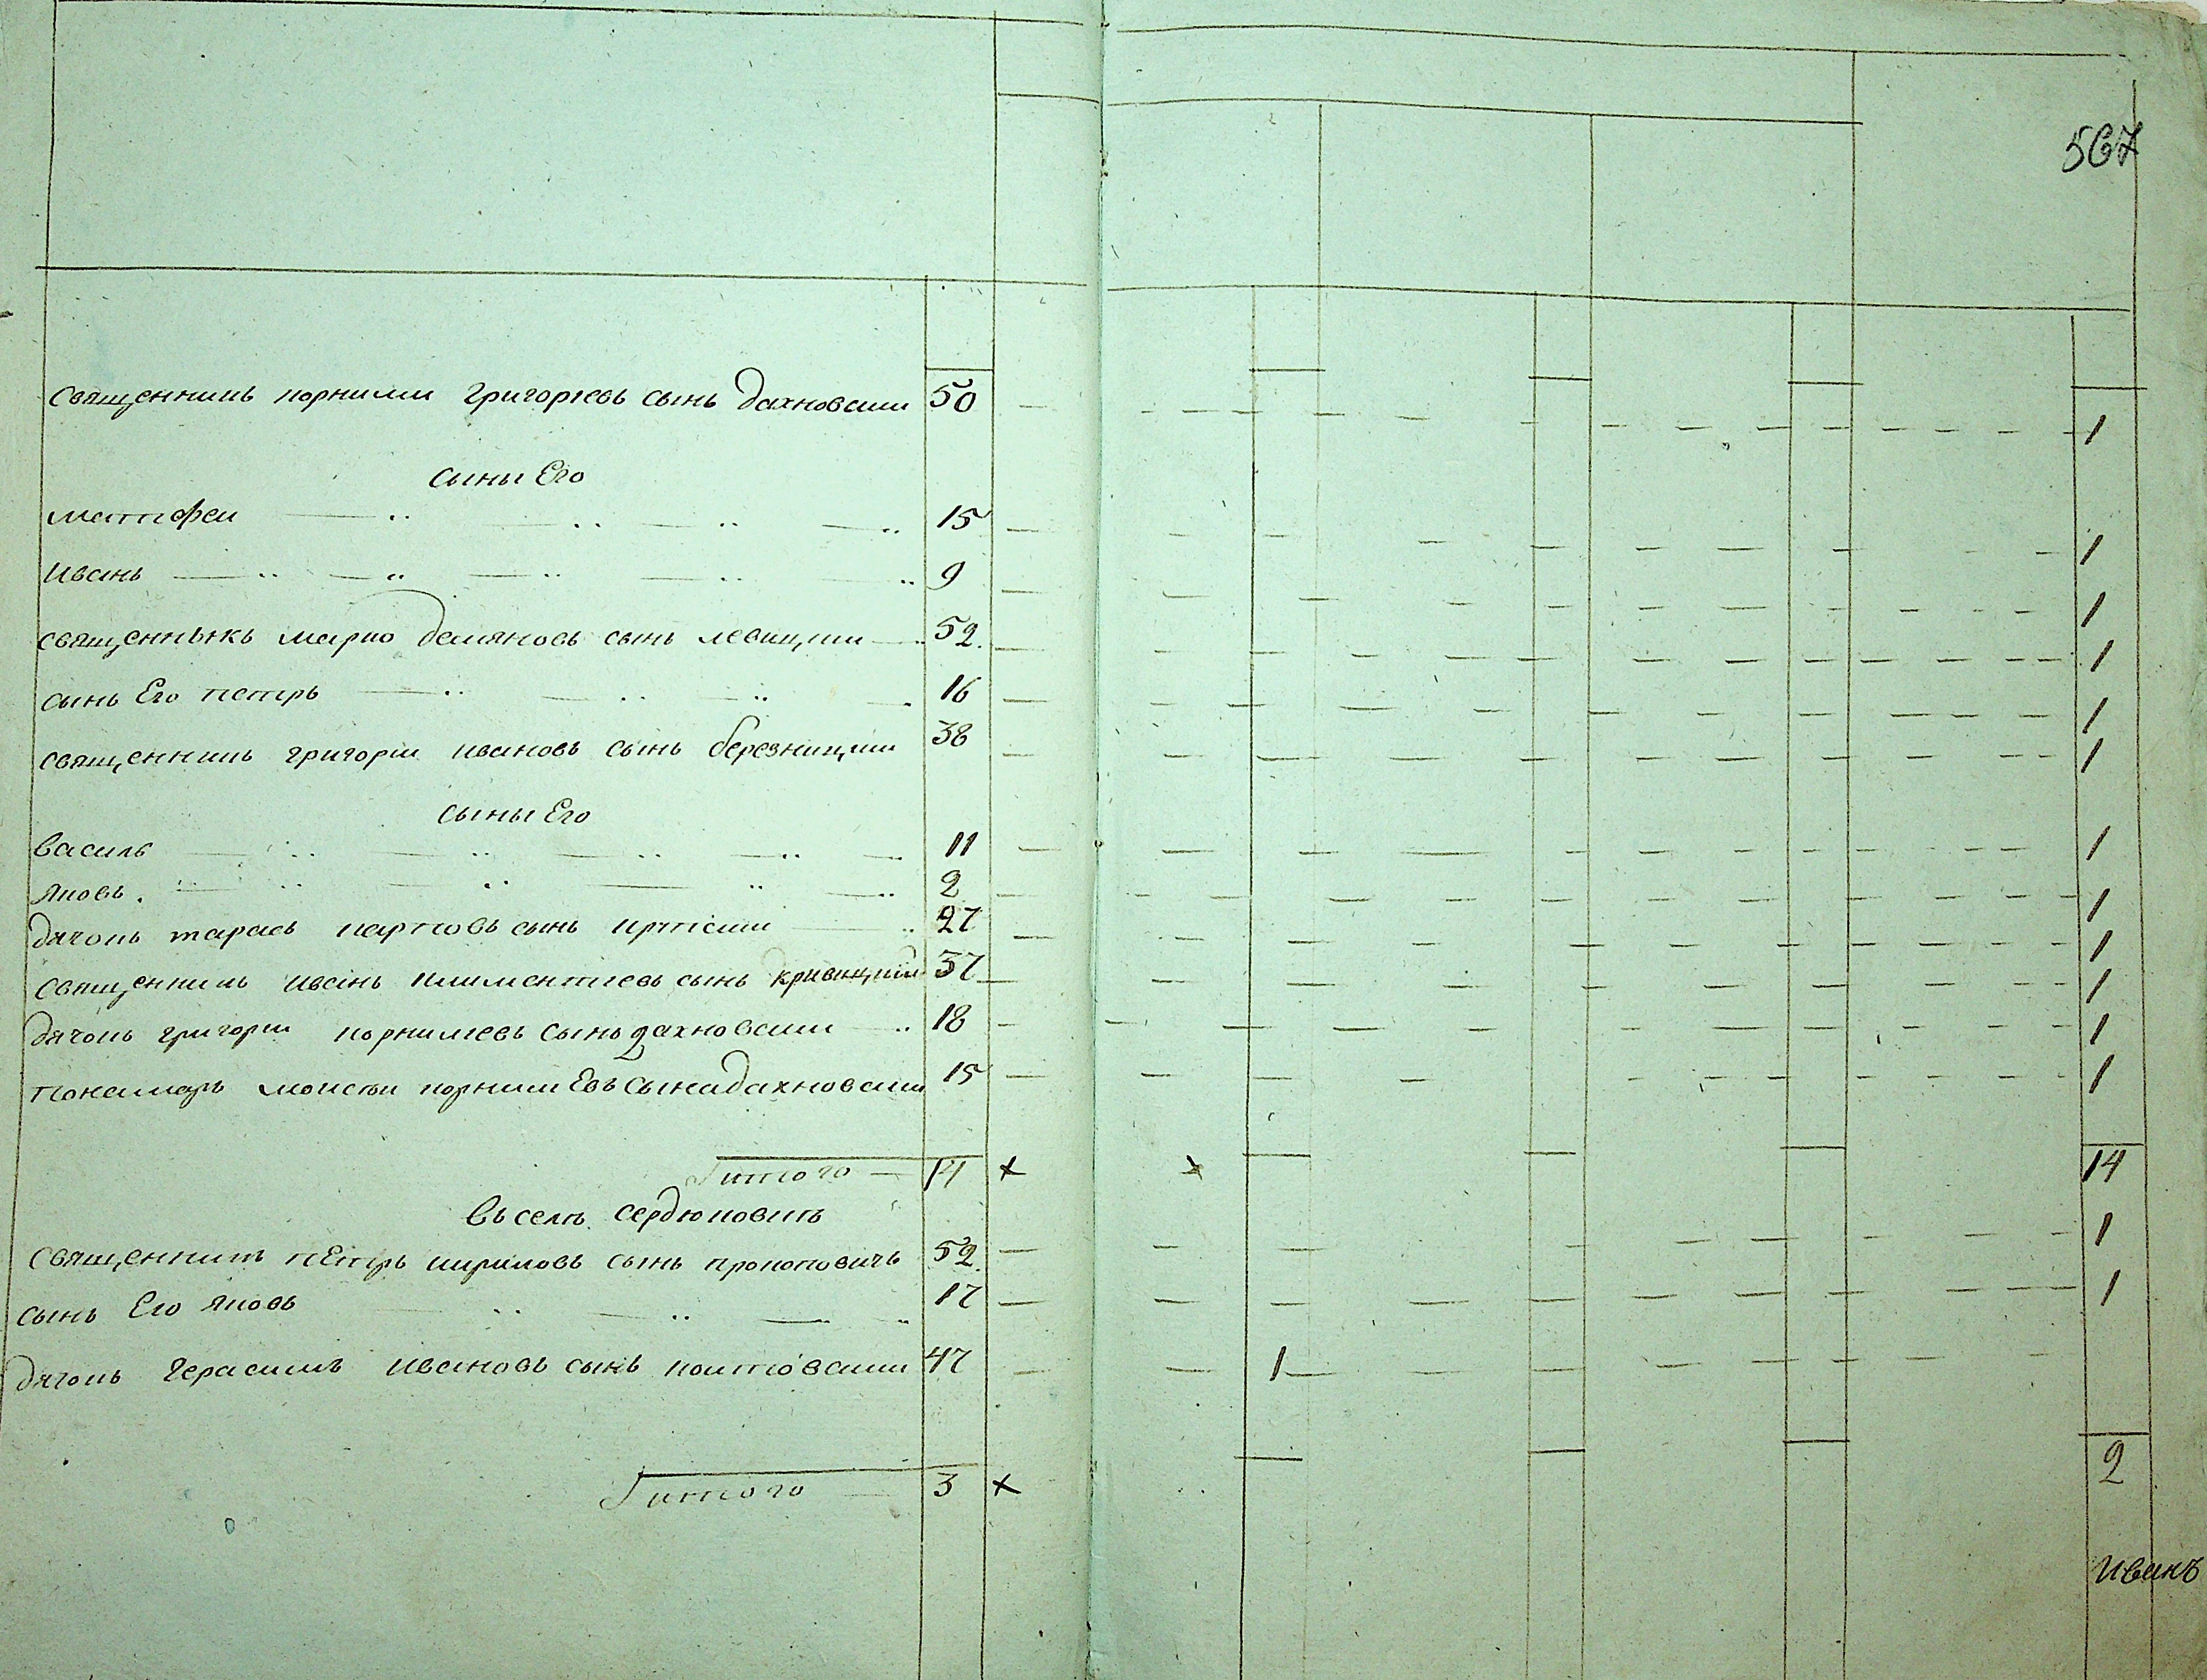 567
Священникъ корнилии григориевъ сынъ дахновски 50 1
сыны Его
матфеи 15 1
иванъ 9 1
священныкъ марко демяновъ сынъ левицки 52. 1
сынъ Его петръ 16 1
священникъ григории ивановъ сынъ березницки 38 1
сыны Его
василь 11 1
яковъ. 2 1
дячокъ тарасъ карповъ сынъ 27 1
священникъ иванъ климентиевъ сынъ кривицкий 37 1
дячокъ григории корнилиевъ сынъ дахновски 18 1
понамаръ моисеи корнилиЕвъ сына дахновски 15 1
итого 14 х х 14
въ селѣ сердюковкѣ
священникъ пЕтръ кириловъ сынъ прокоповичъ 52. 1
сынъ Его яковъ 17 1
дячокъ герасимъ ивановъ сынъ коитовски 47 1
итого 3 х 2
иванъ